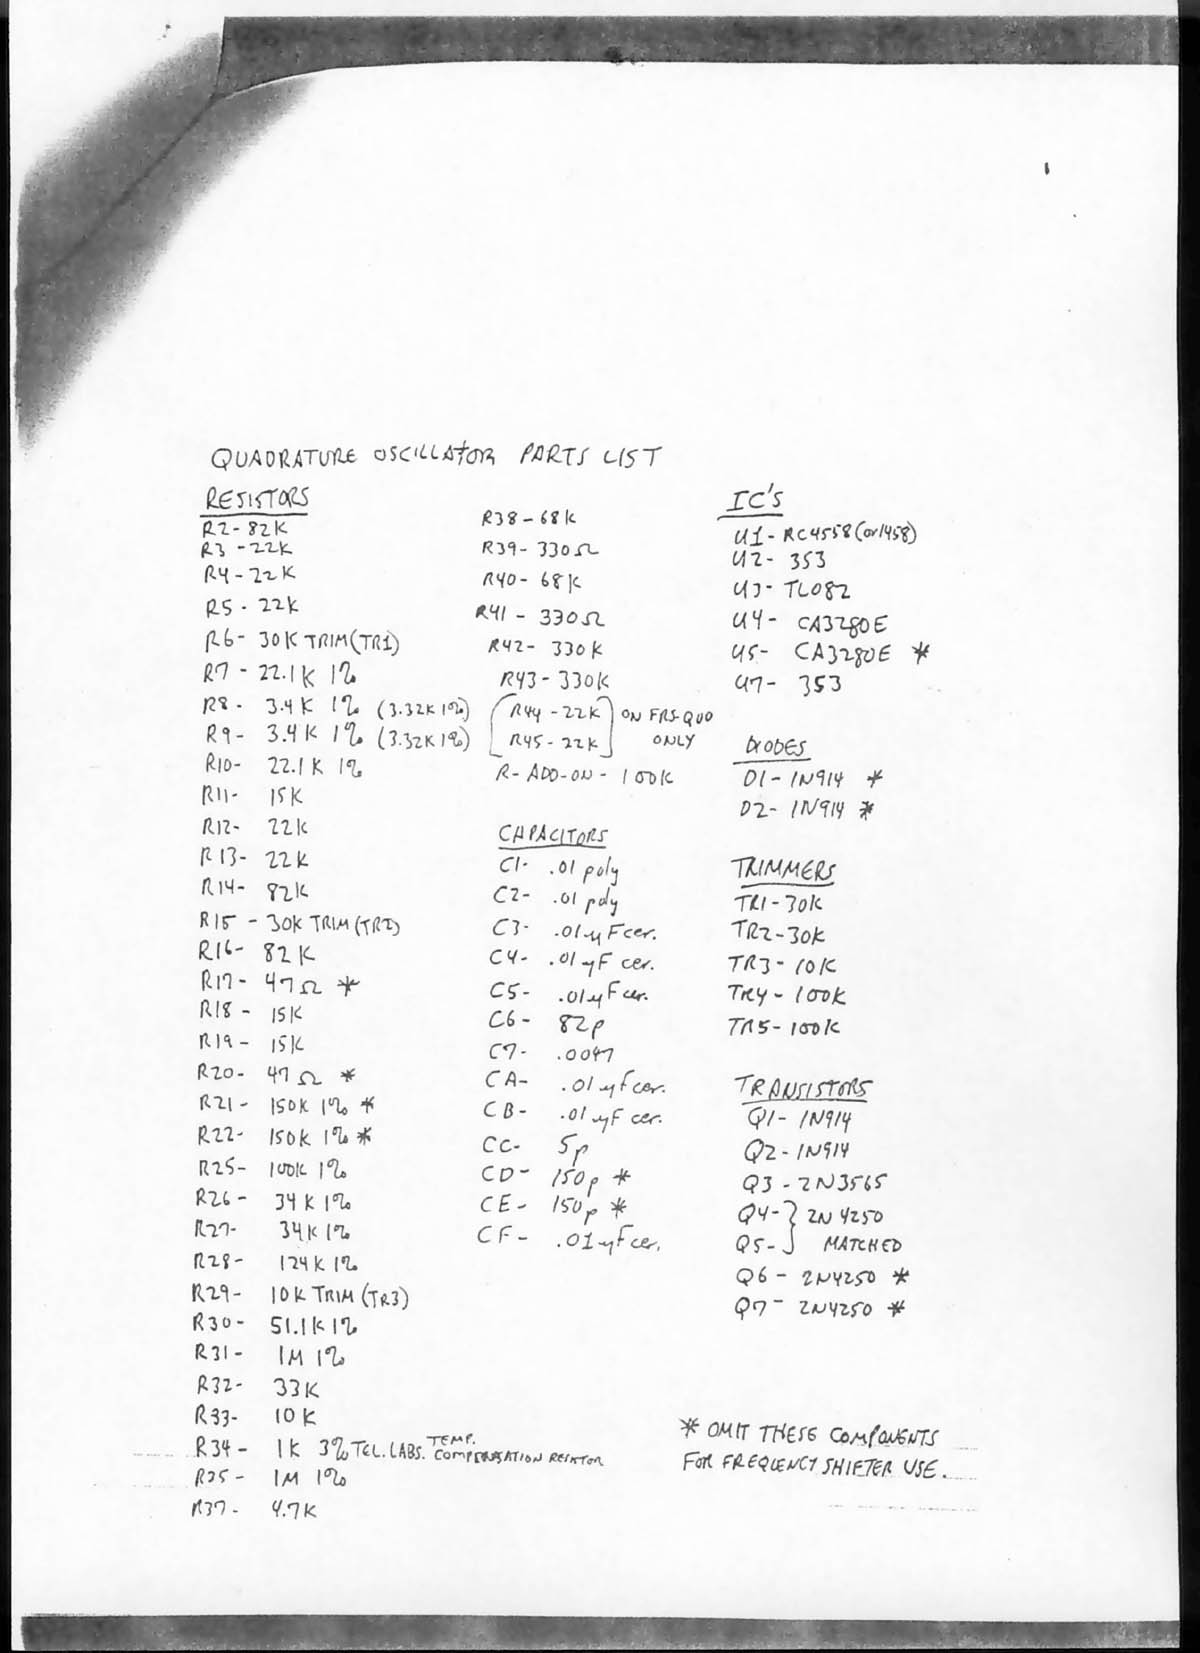 QUADRATURE OSCILLATOR PARTS LIST
RESISTORS
R2-82K
R3-22K
R4-22K
R5-22K
R6-30K TRIM(TR1)
R7-22.1K 1%
R8-3.4K 1% (3.32K 1%)
R9-3.4K 1% (3.32K 1%)
R10-22.1K 1%
R11-15K
R12-22K
R13-22K
R14-82K
R15-30K TRIM(TR2)
R16-82K
R17-47Ω *
R18-15K
R19-15K
R20-47Ω *
R21-150K 1% *
R22-150K 1% *
R25-100K 1%
R26-34K 1%
R27-34K 1%
R28-124K 1%
R29-10K TRIM (TR3)
R30-51.1K 1%
R31-1M 1%
R32-33K
R33-10K
R34-1K 3% TEL. LABS. TEMP. COMPENSATION RESISTOR
R35-1M 1%
R37-4.7K
R38-68K
R39-330Ω
R40-68K
R41-330Ω
R42-330K
R43-330K
R44-22K ON FRS-QUO
R45-22K ONLY
R-ADD-ON-100K
CAPACITORS
C1-.01 poly
C2-.01 poly
C3-.01µF cer.
C4-.01µF cer.
C5-.01µF cer.
C6-82p
C7-.0047
CA-.01µF cer.
CB-.01µF cer.
CC-5p
CD-150p *
CE-150p *
CF-.01µF cer.
IC'S
U1-RC4558(or1458)
U2-353
U3-TL082
U4-CA3280E
U5-CA3280E *
U7-353
DIODES
D1-1N914 *
D2-1N914 *
TRIMMERS
TR1-30K
TR2-30K
TR3-10K
TR4-100K
TR5-100K
TRANSISTORS
Q1-1N914
Q2-1N914
Q3-2N3565
Q4-} 2N4250
Q5-} MATCHED
Q6-2N4250 *
Q7-2N4250 *
* OMIT THESE COMPONENTS
FOR FREQUENCY SHIFTER USE.